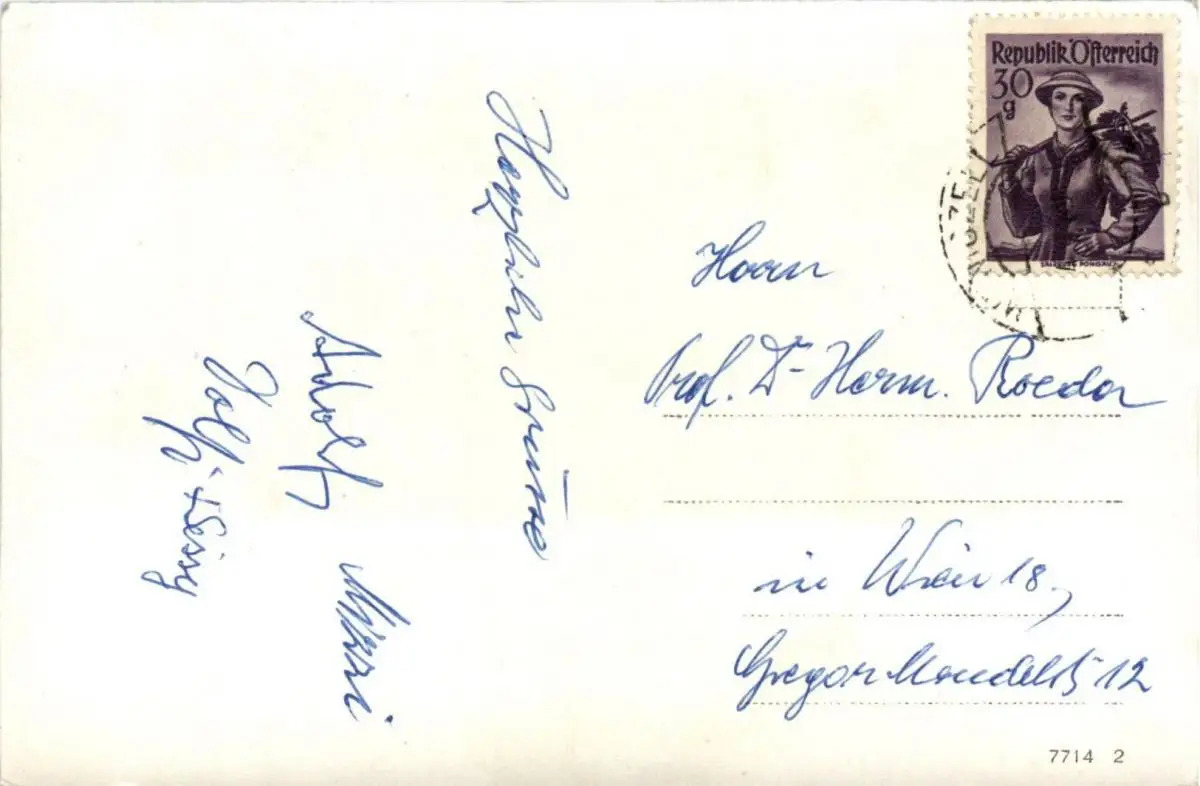 Republik Österreich
30
g
SALZBURG, PONGAU
Herzliche Grüße
Adolf
Mizzi
Dolfi + Sissy
Herrn
Prof. Dr Herm. Roeder
in Wien 18.,
Gregor Mendelstr 12
7714 2